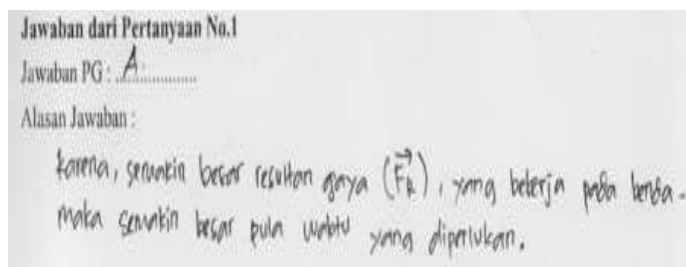 Jawaban dari Pertanyaan No.1
Jawaban PG : A
Alasan Jawaban :
karena, semakin besar resultan gaya (F⃗R), yang bekerja pada benda.
maka semakin besar pula waktu yang diperlukan.